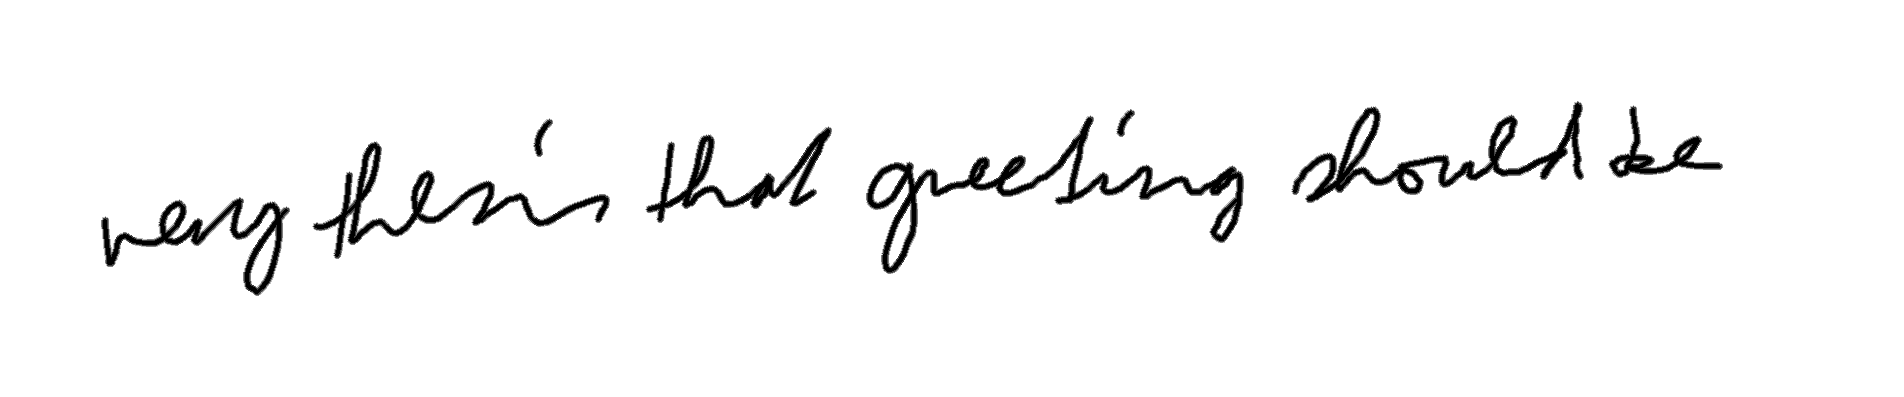 very thesis that greeting should be